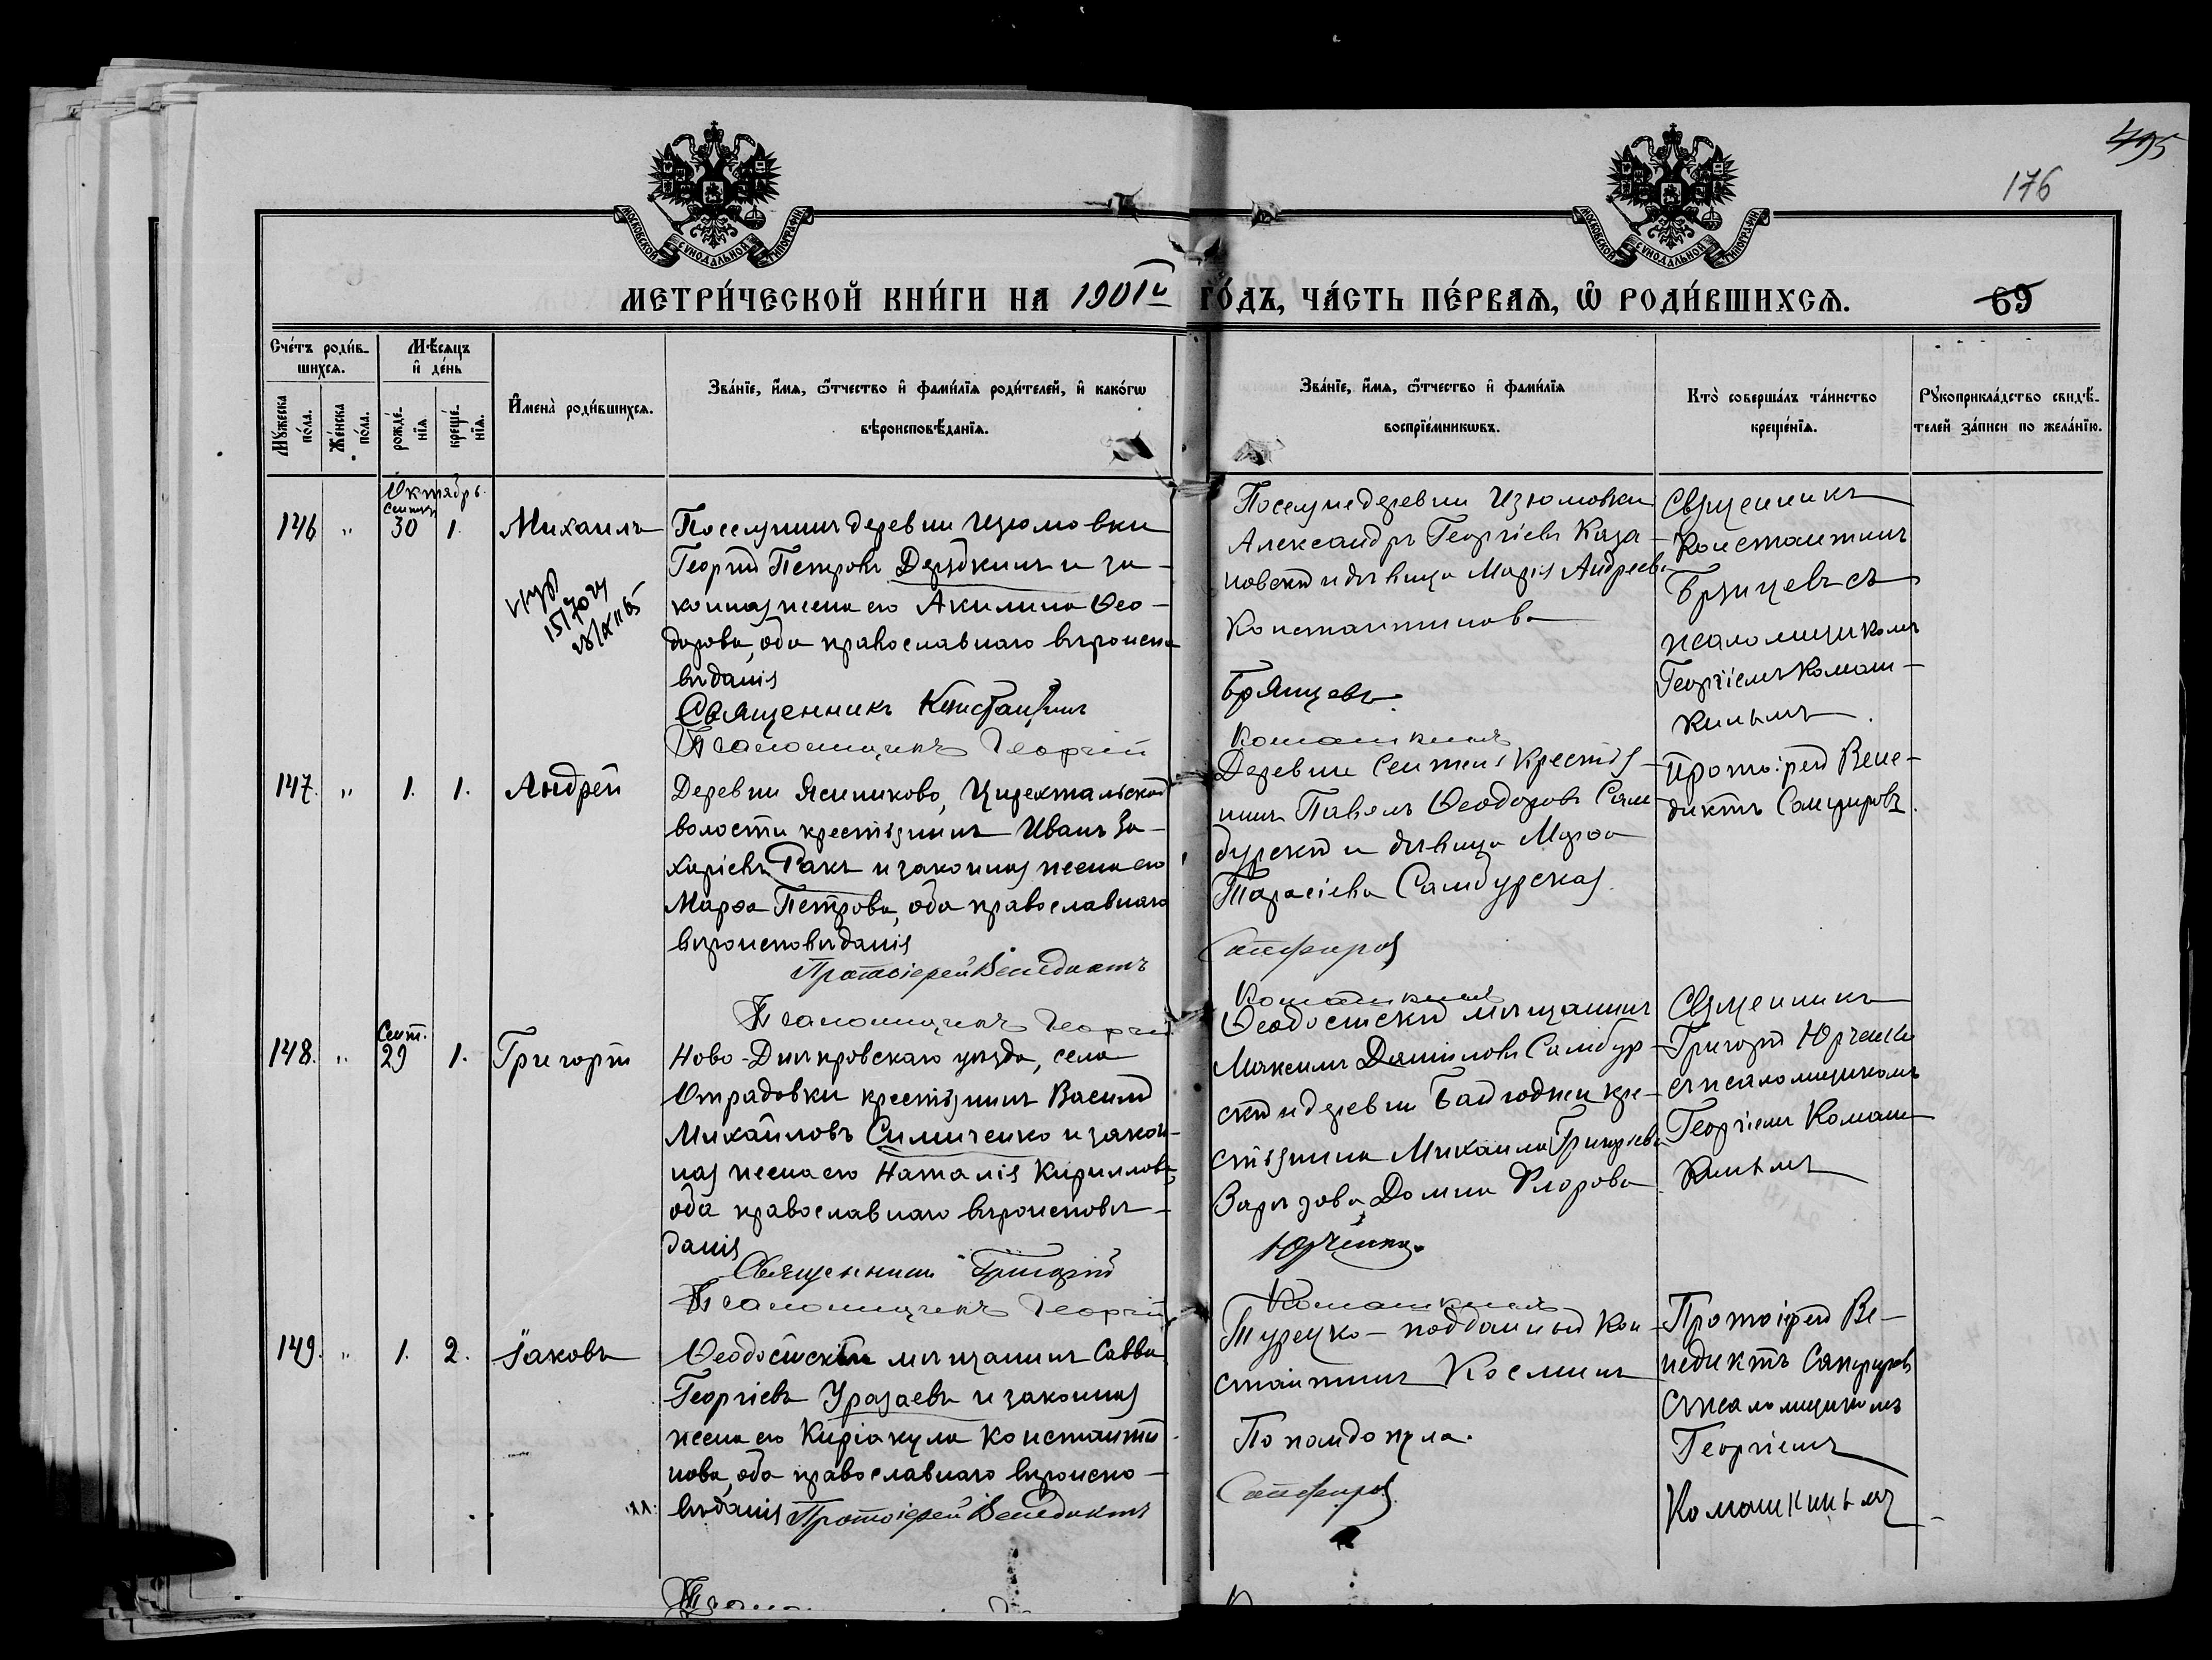 495
176
МОСКОВСКОЙ СУНОДАЛЬНОЙ ТИПОГРАФІИ
МОСКОВСКОЙ СУНОДАЛЬНОЙ ТИПОГРАФІИ
МЕТРИ́ЧЕСКОЙ КНИ́ГИ НА 1901й ГО́ДЪ, ЧА́СТЬ ПЕ́РВАѦ, Ѡ҆ РОДИ́ВШИХСѦ. 69
Сче́тъ роди́в-
шихсѧ.
Мꙋ́жеска по́ла.
Же́нска по́ла.
Мѣ́сѧцъ
и҆ де́нь
рожде́-
нїѧ
креще́-
нїѧ.
И҆мена̀ роди́вшихсѧ.
Зва́нїе, и҆́мѧ, ѻ҆́тчество и҆ фами́лїѧ роди́телей, и҆ како́гѡ
вѣроисповѣ́данїѧ.
Зва́нїе, и҆́мѧ, ѻ҆́тчество и҆ фами́лїѧ
воспрїе́мникѡвъ.
Кто̀ соверша́лъ та́инство
креще́нїѧ.
Рꙋкоприкла́дство свидѣ́-
телей за́писи по жела́нїю.
Октябрь
146 " Сент. 30 1. Михаилъ
Поселянинъ деревни Изюмовки
Георгій Петровъ Дерябкинъ и за-
конная жена его Акилина Ѳео-
дорова, оба православнаго вѣроиспо
вѣданія
Священникъ Константинъ
Псаломщикъ Георгій
Поселяне деревни Изюмовки
Александръ Георгіевъ Каза-
новскій и дѣвица Марія Андреева
Константинова
Брянцевъ.
Комашкинъ
Священникъ
Константинъ
Брянцевъ съ
псаломщикомъ
Георгіемъ Комаш-
кинымъ.
147. " 1. 1. Андрей
Деревни Ясиниково, Цюрехтальской
волости крестьянинъ Иванъ За-
харіевъ Ракъ и законная жена его
Марѳа Петрова, оба православнаго
вѣроисповѣданія
Протоіерей Венедиктъ
Псаломщикъ Георгій
Деревни Сеитенъ крестья-
нинъ Павелъ Ѳеодоровъ Сам-
бурскій и дѣвица Марѳа
Тарасіева Самбурская.
Сапфировъ
Комашкинъ
Протоіерей Вене-
диктъ Сапфировъ.
148. " Сент. 29 1. Григорій
Ново-Днѣпровскаго уѣзда, села
Отрадовки крестьянинъ Василій
Михайловъ Симиченко и закон-
ная жена его Наталія Кириллова,
оба православнаго вѣроисповѣ-
данія
Священникъ Григорій
Псаломщикъ Георгій
Ѳеодосійскій мѣщанинъ
Максимъ Даниловъ Самбур-
скій и деревни Байгоджи кре-
стьянина Михаила Григоріева
Домна Флорова
Юрченко.
Комашкинъ
Священникъ
Григорій Юрченко
съ псаломщикомъ
Георгіемъ Комаш-
кинымъ
149. " 1. 2. Іаковъ
Ѳеодосійскій мѣщанинъ Савва
Георгіевъ Уразаевъ и законная
жена его Киріакула Константи-
нова, оба православнаго вѣроиспо-
вѣданія Протоіерей Венедиктъ
Турецко-подданный Кон-
стантинъ Косминъ
Попандопуло.
Сапфировъ.
Протоіерей Ве-
недиктъ Сапфировъ
съ псаломщикомъ
Георгіемъ
Комашкинымъ